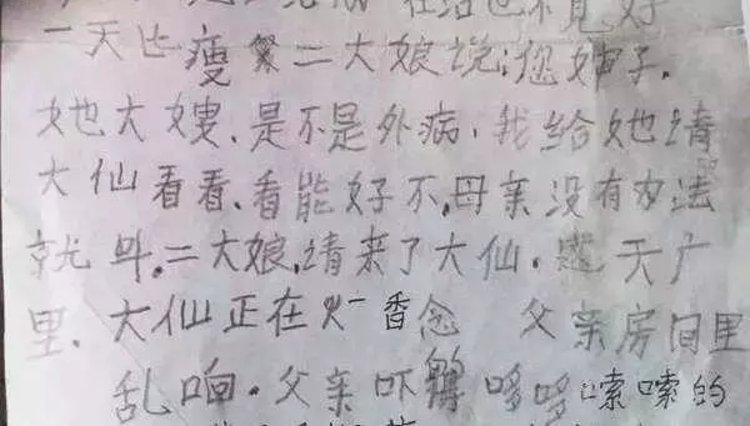 在治也不見好
一天比瘦 二大娘说:您婶子.
她大嫂.是不是外病.我给她请
大仙看看.看能好不.母亲没有办法
就叫.二大娘.请来了大仙. 天广
里.大仙正在 香念 父亲房间里
乱响.父亲吓 哆哆嗦嗦的